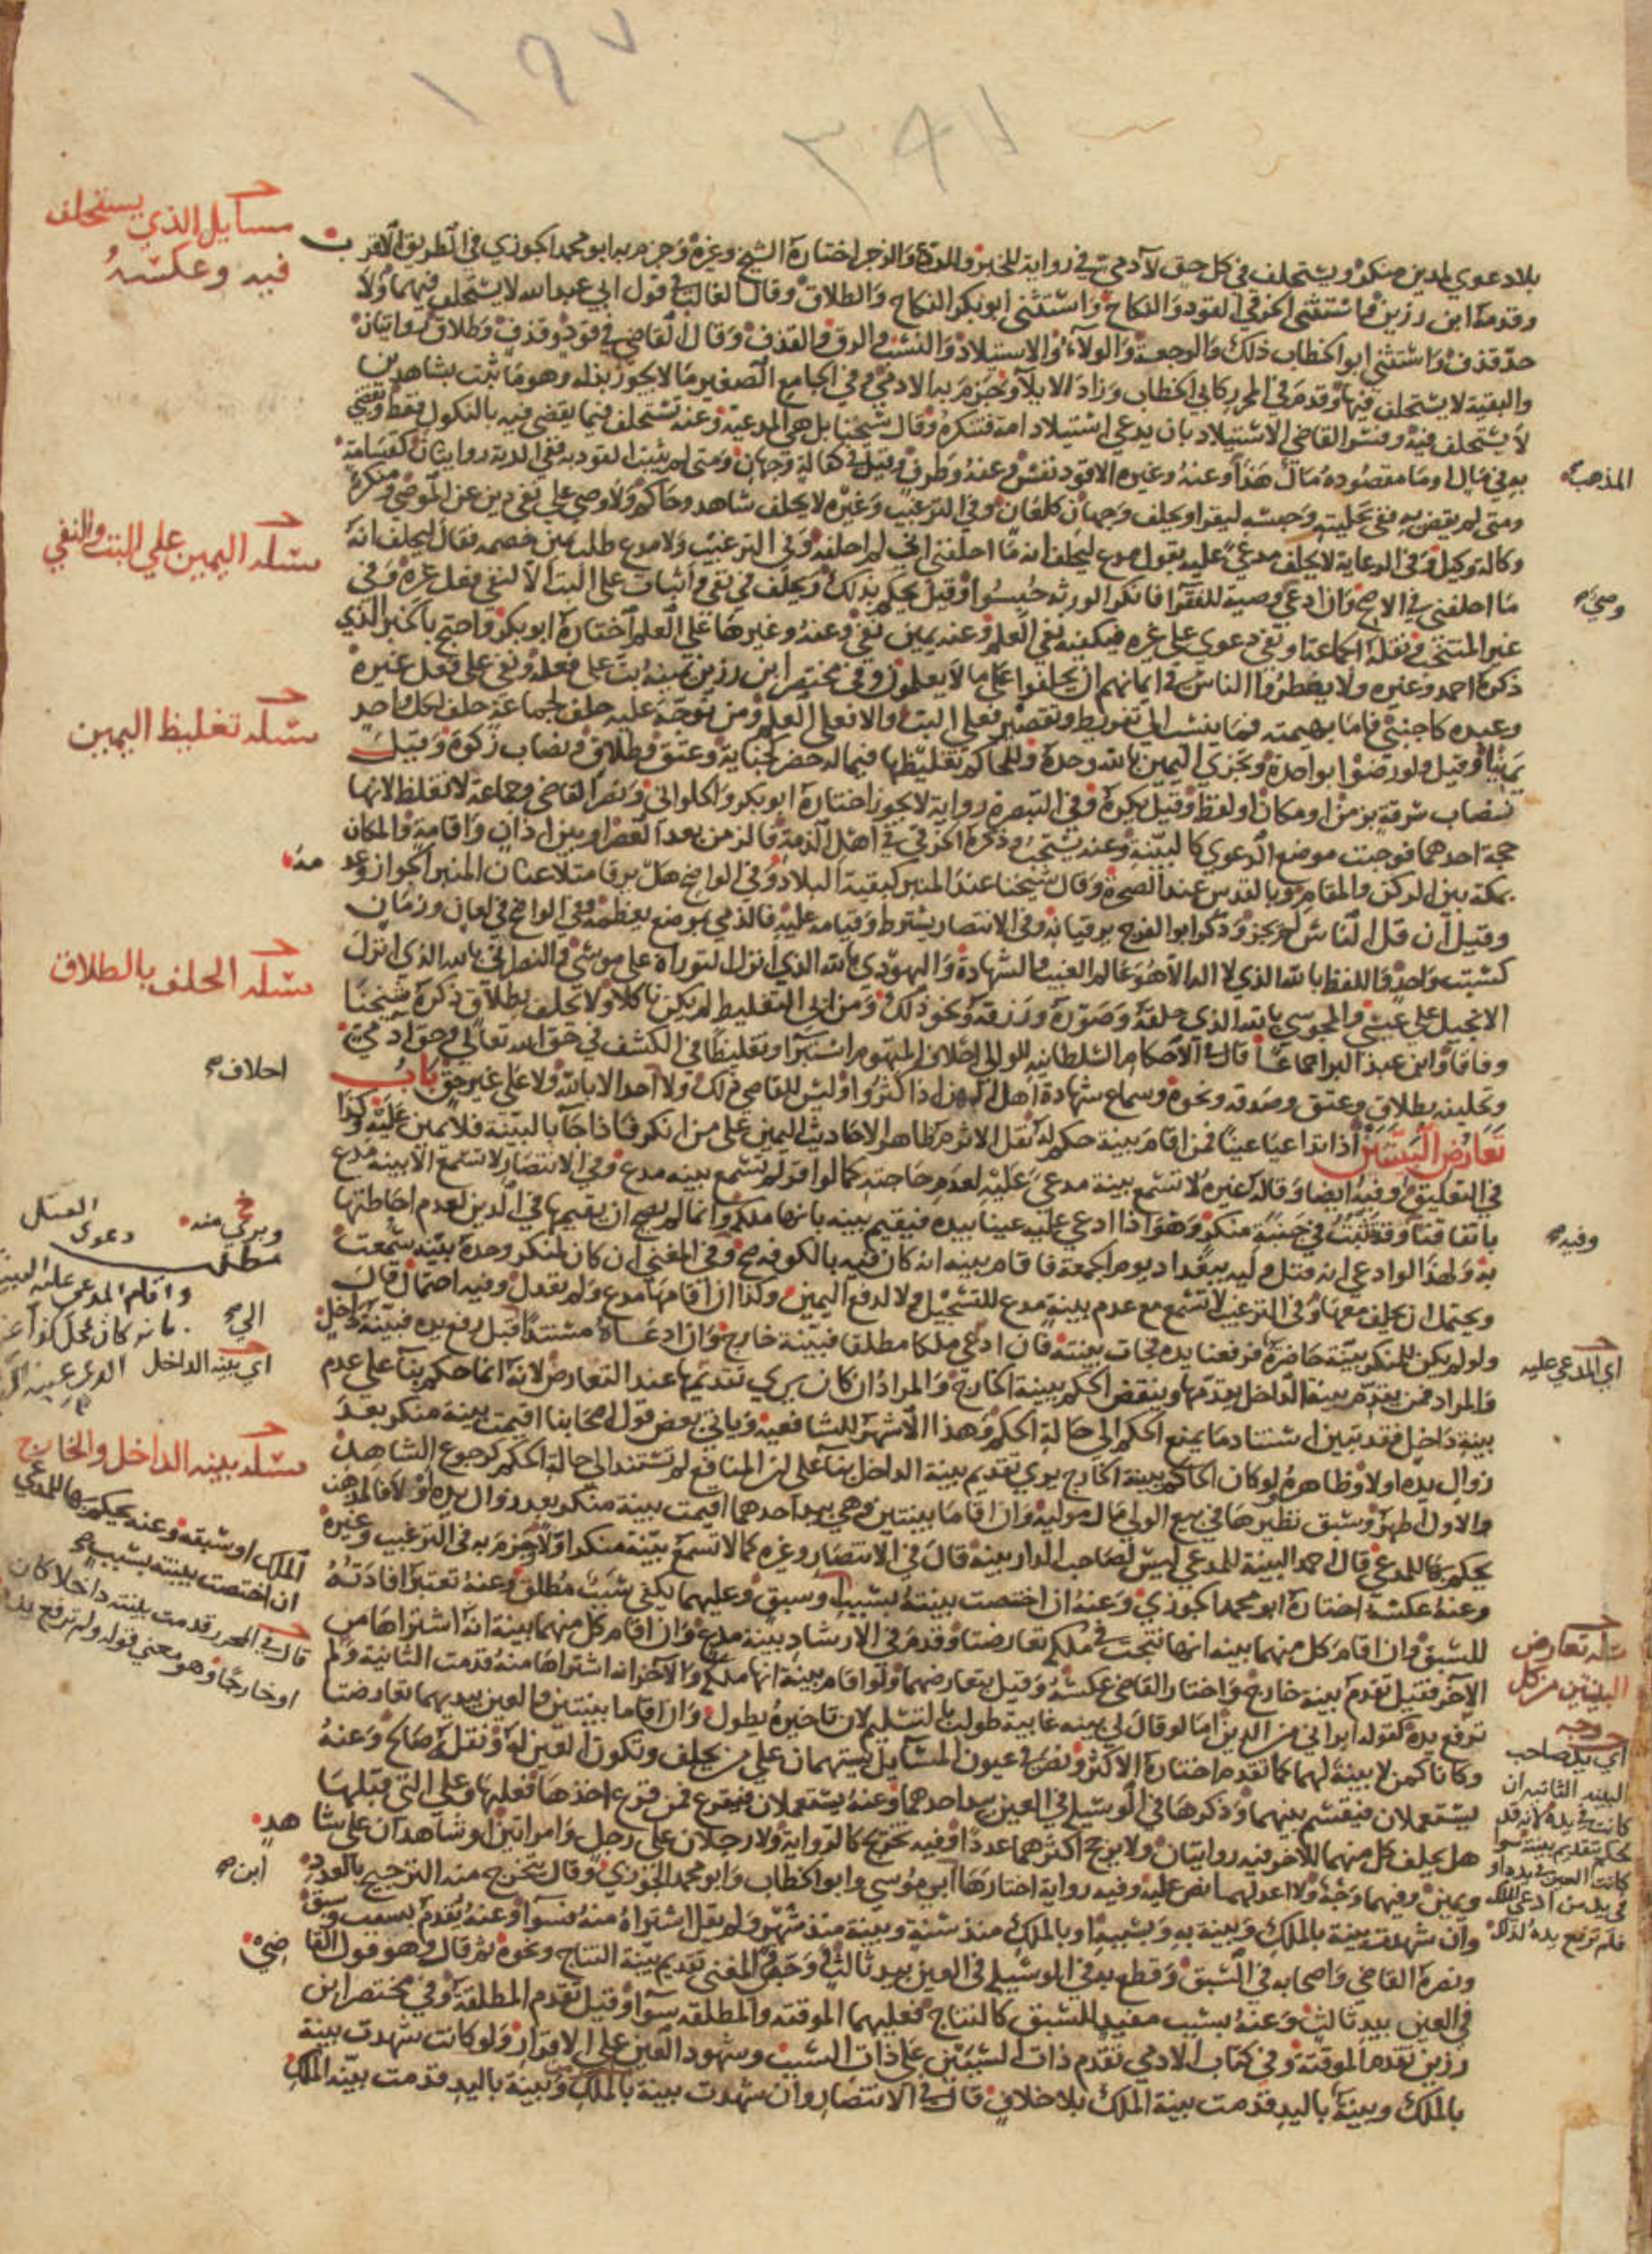 ١٩٧
٣٤١
مسايل الذي يستحلف
فيه وعكسه
بلا دعوي لمدين منكر ويستحلف في كل حق لآدمي في رواية للخبز والمردة والزجر اختاره الشيخ وغيره وجزم به ابو محمد الجوزي في الطريق الاقرب
وقدمه ابن رزين فاستثني الخرقي القود والنكاح واستثني ابو بكر النكاح والطلاق وقال الغالب في قول ابي عبد الله لا يستحلف فيهما ولا
حد قذف واستثني ابو الخطاب ذلك والرجعة والولاء والاستيلاد والنسب والرق والقذف وقال القاضي في قود وقذف وطلاق روايتان
والبقية لا يستحلف فيها وقدم في المحرر كابي الخطاب وزاد الايلا وجزم به الادمي وفي الجامع الصغير ما لا يجوز بذله وهو ما ثبت بشاهدين
لا يستحلف فيه وفسر القاضي الاستيلاد بان يدعي استيلاد امة فتنكره وقال شيخنا بل هي المدعية وعنه تستحلف فيما يقضي فيه بالنكول فقط ويقضي
به في مال او ما مقصوده مال هذا وعنه وغيره الا قود نفس وعنه وطرف وقيل في كفالة وجهان ومتي لم يثبت القود به ففي الدية روايتان كقسامة
المذهب
ومتي لم يقض به ففي تخليته وحبسه ليقر او يحلف وجهان كلعان وفي الترغيب وغيره لا يحلف شاهد وحاكم ولا وصي علي نفي دين عن الموصي ومنكر
وكالة وكيل وفي الرعاية لا يحلف مدعي عليه بقول مدع ليحلف انه ما احلفني اني لم احلفه وفي الترغيب ولا مدع طلب يمين خصمه فقال ليحلف انه
مسله اليمين علي البت والنفي
ما احلفني في الاصح وان ادعي وصية للفقرا فانكر الورثه حبسوا وقيل يحكم بذلك ويحلف في نفي واثبات علي البت الا لنفي فعل غيره وفي
وصي
غير المنتخب نقله الجماعة او نفي دعوي علي غيره فيكفيه نفي العلم وعنه يمين نفي وعنه وغيرها علي العلم اختاره ابو بكر واحتج بالخبر الذي
ذكره احمد وغيره ولا يضطروا الناس في ايمانهم ان يحلفوا علي ما لا يعلمون وفي مختصر ابن رزين يمينه بت علي فعله ونفي علي فعل غيره
وعبده كاجنبي فاما بهيمته فما ينسب الي تفريط وتقصير فعلي البت والا فعلي العلم ومن توجه عليه حلف لجماعة حلف لكل واحد
مسله تغليظ اليمين
يمينا وقيل ولو رضوا بواحدة وتجزي اليمين بالله وحده وللحاكم تغليظها فيما له خطر كجناية وعتق وطلاق ونصاب زكوة وقيل
نصاب سرقة بزمن او مكان او لفظ وقيل يكره وفي التبصرة رواية لا يجوز اختاره ابو بكر والحلواني ونصر القاضي وجماعة لا تغلظ لانها
حجة احدهما فوجبت موضع الدعوي كالبينة وعنه يستحب وذكره الخرقي في اهل الذمة فالزمن بعد العصر او بين اذان واقامة والمكان
بمكة بين الركن والمقام وبالقدس عند الصخرة وقال شيخنا عند المنبر كبقية البلاد وفي الواضح هل يرقا متلاعنان المنبر الجواز وعدمه
وقيل ان قل الناس لم يجز وذكر ابو الفرج يرقيانه وفي الانتصار يشترط وقيامه عليه فالذمي بموضع يعظمه وفي الواضح في لعان وزمان
كسبت واحد واللفظ بالله الذي لا اله الا هو عالم الغيب والشهادة واليهودي بالله الذي انزل التوراة علي موسي والنصراني بالله الذي انزل
مسله الحلف بالطلاق
الانجيل علي عيسي والمجوسي بالله الذي خلقه وصوره ورزقه ونحو ذلك ومن ابي التغليظ لم يكن ناكلا ولا يحلف بطلاق ذكره شيخنا
وفاقا وابن عبد البر اجماعا قال في الاحكام السلطانيه للوالي احلاف المتهوم استبرا وتغليظا في الكشف في حق الله تعالي وحق ادمي
احلاف
وتحليفه بطلاق وعتق وصدقة ونحوه وسماع شهادة اهل المهن اذا كثروا وليس للقاضي ذلك ولا احد الا بالله ولا علي غير حق باب
تعارض البينتين اذا تداعيا عينا فمن اقام بينة حكم له نقل الاثرم ظاهر الاحاديث اليمين علي من انكر فاذا جا بالبينة فلا يمين عليه وكذا
في التعليق وفيه ايضا وقاله غيره لا تسمع بينة مدعي عليه لعدم حاجته كما لو اقر لم تسمع بينه مدع وفي الانتصار لا تسمع الا بينه مدع
باتفاقنا وقد تثبت في جنبة منكر وهو اذا ادعي عليه عينا بيده فيقيم بينه بانها ملكه وانما لم يصح ان يقيمها في الدين لعدم احاطتها
وفيه
به ولهذا لو ادعي انه قتل وليه ببغداد يوم الجمعة فاقام بينه انه كان فيه بالكوفه صح وفي المغني ان كان لمنكر وحده بينه سمعت
ويحتمل ان يحلف معها وفي الترغيب لا تسمع مع عدم بينة مدع للتسجيل ولا لدفع اليمين وكذا ان اقامها مدع ولم تعدل وفيه احتمال قال
ولو لم يكن للمنكر بينة حاضرة فرفعنا يده فجات بينته فان ادعي ملكا مطلقا فبينة خارج وان ادعاه مستندا قبل رفع يده فبينة داخل
اي المدعي عليه
والمراد فمن يقدم بينة الداخل يقدمها وينقض الحكم ببينة الخارج والمراد ان كان يري تقديمها عند التعارض لانه انما حكم بنا علي عدم
بينة داخل فقد تبين استنادها يمنع الحكم الي حالة الحكم وهذا الاشهر للشافعية وياتي بعض قول اصحابنا اقيمت بينة منكر بعد
زوال يده اولا وظاهره لو كان الحاكم ببينة الخارج يري تقديم بينة الداخل بنا علي ان المنافع لم تستند الي حالة الحكم كرجوع الشاهد
والاول اظهر وسبق نظيرها في بيع الولي مال موليه وان اقاما بينتين وهي بيد احدهما اقيمت بينة منكر بعد زوال يده اولا فالمذهب
مسله بينه الداخل والخارج
يحكم بها للمدعي قال احمد البينة للمدعي ليس لصاحب الدار بينة قال في الانتصار وغيره كما لا تسمع بينة منكر اولا وجزم به في الترغيب وغيره
وعنه عكسه اختاره ابو محمد الجوزي وعنه ان اختصت بينته بسبب او سبق وعليهما يكفي سبب مطلق وعنه تعتبر افادته
للسبق وان اقام كل منهما بينه انها نتجت في ملكه تعارضتا وقدم في الارشاد بينة مدع وان اقام كل منهما بينة انه اشتراها من
الآخر فقيل تقدم بينة خارج واختار القاضي عكسه وقيل بتعارضهما ولو اقام بينة انها ملكه والآخر انه اشتراها منه قدمت الثانية ولم
ترفع يده كقوله ابراني من الدين اما لو قال لي بينه غايبة طولب بالتسليم لان تاخيره يطول وان اقاما بينتين والعين بيديهما تعارضتا
وكانا كمن لا بينة لهما كما تقدم اختاره الاكثر ونص في عيون المسايل يستهمان علي من يحلف وتكون العين له ونقله صالح وعنه
يستعملان فيقسم بينهما وذكرها في الوسيلة في العين بيد احدهما وعنه يستعملان فيقرع فمن قرع اخذها فعليها وعلي التي قبلها
هل يحلف كل منهما للآخر فيه روايتان ولا يرجح اكثرهما عددا وفيه تخريج كالرواية ولا رجلان علي رجل وامراتين او شاهدان علي شاهد
ويمين وفيهما وجه ولا اعدلهما نص عليه وفيه رواية اختارها ابن ابي موسي وابو الخطاب وابو محمد الجوزي وقال يتخرج منه الترجيح بالعدد
ابن
وان شهدت بينة بالملك وبينة به وبسببه او بالملك منذ سنة وبينة منذ شهر ولم يقل اشتراه منه فسوا وعنه تقدم بسبب وسبق
ونصره القاضي واصحابه في السبق وقطع به في الوسيلة في العين بيد ثالث وخص المغني تقديم بينة النتاج ونحوه ثم قال وهو قول القاضي
في العين بيد ثالث وعنه بسبب مفيد للسبق كالنتاج فعليهما الموقتة والمطلقه سوا وقيل تقدم المطلقة وفي مختصر ابن
رزين تقدم الموقتة وفي كتاب الادمي تقدم ذات السببين علي ذات السبب وشهود العين علي الاقرار ولو كانت شهدت بينة
بالملك وبينة باليد قدمت بينة الملك بلا خلاف قال في الانتصار وان شهدت بينة بالملك وبينة باليد قدمت بينة الملك
ويزكي منه
مطلب
دعوي
واقام المدعي عليه البينة
الي
بانه كان
اي بينه الداخل
الملك او سبقه وعنه يحكم بها للمدعي
ان اختصت بينته بسبب
قال في المحرر قدمت بينته داخلا كان
او خارجا وهو معني قوله ولم ترفع يده
مسله تعارض
البينتين من كل
وجه
اي يد صاحب
البينه الثانيه ان
كانت في يده لانه قد
حكم بتقديم بينته سوا
كانت العين في يده او
في يد من ادعي الملك
فلم ترفع يده لذلك